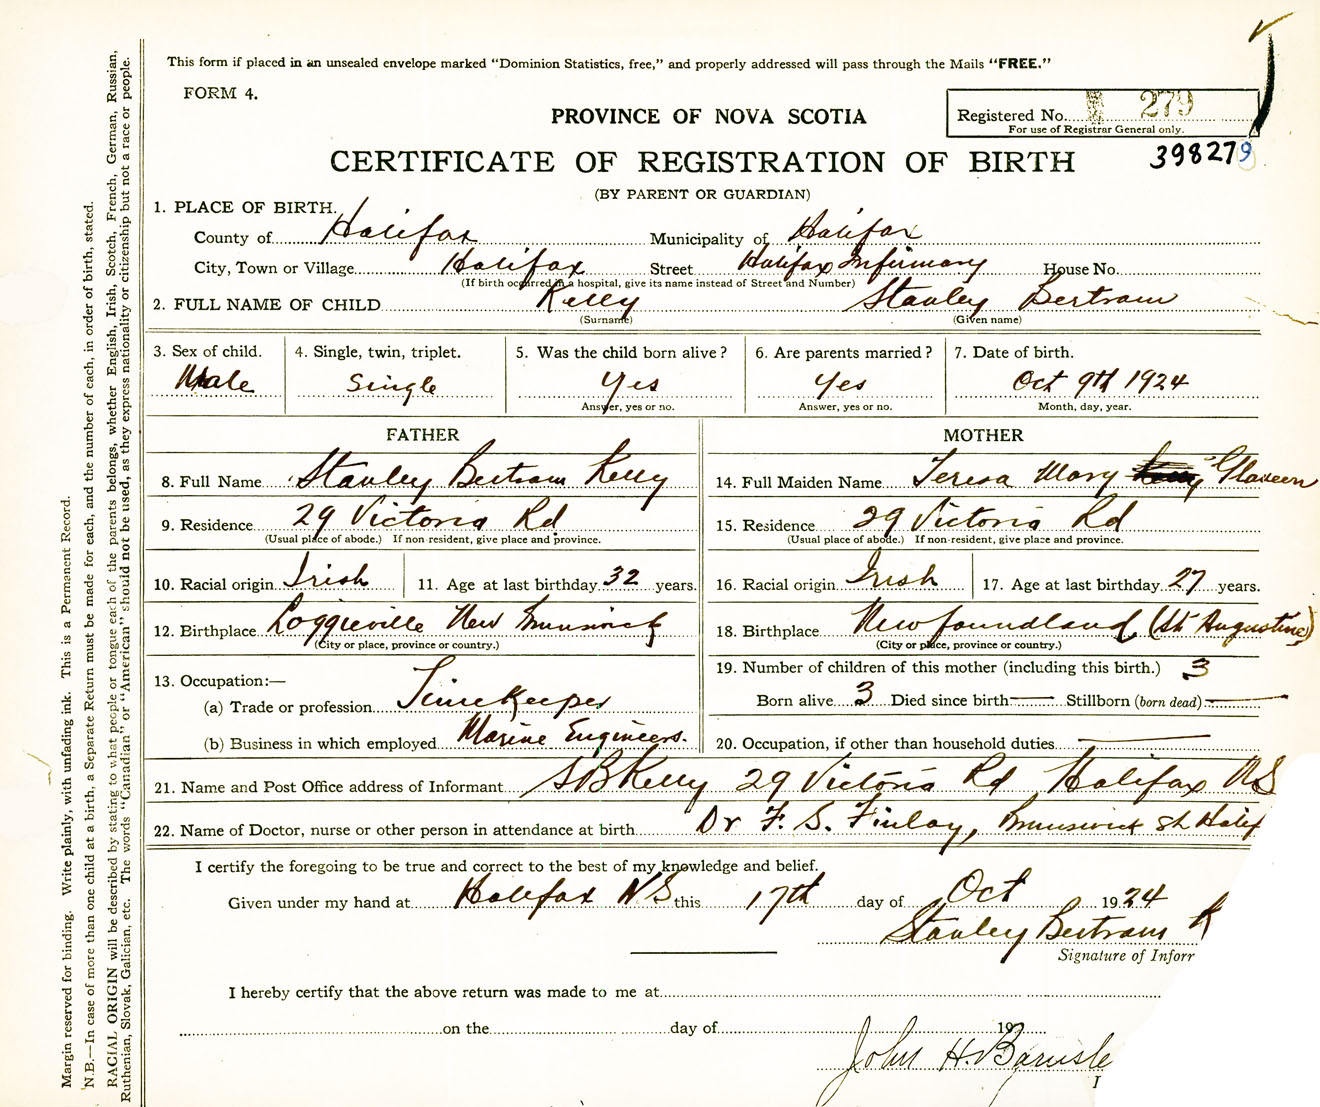 This form if placed in an unsealed envelope marked "Dominion Statistics, free," and properly addressed will pass through the Mails "FREE."
FORM 4.
PROVINCE OF NOVA SCOTIA
Registered No. 279
For use of Registrar General only.
CERTIFICATE OF REGISTRATION OF BIRTH
398279
(BY PARENT OR GUARDIAN)
1. PLACE OF BIRTH.
County of Halifax Municipality of Halifax
City, Town or Village Halifax Street Halifax Infirmary House No.
(If birth occurred in a hospital, give its name instead of Street and Number)
2. FULL NAME OF CHILD Kelly Stanley Bertram
(Surname) (Given name)
3. Sex of child. 4. Single, twin, triplet. 5. Was the child born alive? 6. Are parents married? 7. Date of birth.
Male Single Yes Yes Oct 9th 1924
Answer, yes or no. Answer, yes or no. Month, day, year.
FATHER MOTHER
8. Full Name Stanley Bertram Kelly 14. Full Maiden Name Teresa Mary Glaveen
9. Residence 29 Victoria Rd 15. Residence 29 Victoria Rd
(Usual place of abode.) If non-resident, give place and province. (Usual place of abode.) If non-resident, give place and province.
10. Racial origin Irish 11. Age at last birthday 32 years. 16. Racial origin Irish 17. Age at last birthday 27 years.
12. Birthplace Loggieville New Brunswick 18. Birthplace Newfoundland (St Augustine)
(City or place, province or country.) (City or place, province or country.)
13. Occupation:— 19. Number of children of this mother (including this birth.) 3
(a) Trade or profession Timekeeper Born alive 3 Died since birth — Stillborn (born dead) —
(b) Business in which employed Marine Engineers. 20. Occupation, if other than household duties —
21. Name and Post Office address of Informant S B Kelly 29 Victoria Rd Halifax NS
22. Name of Doctor, nurse or other person in attendance at birth Dr F. S. Finlay, Brunswick St Halif
I certify the foregoing to be true and correct to the best of my knowledge and belief.
Given under my hand at Halifax N S this 17th day of Oct 1924
Stanley Bertram K
Signature of Inforr
I hereby certify that the above return was made to me at
on the day of 19
John H. Barnsle
I
Margin reserved for binding. Write plainly, with unfading ink. This is a Permanent Record.
N.B.—In case of more than one child at a birth, a Separate Return must be made for each, and the number of each, in order of birth, stated.
RACIAL ORIGIN will be described by stating to what people or tongue each of the parents belongs, whether English, Irish, Scotch, French, German, Russian,
Ruthenian, Slovak, Galician, etc. The words "Canadian" or "American" should not be used, as they express nationality or citizenship but not a race or people.